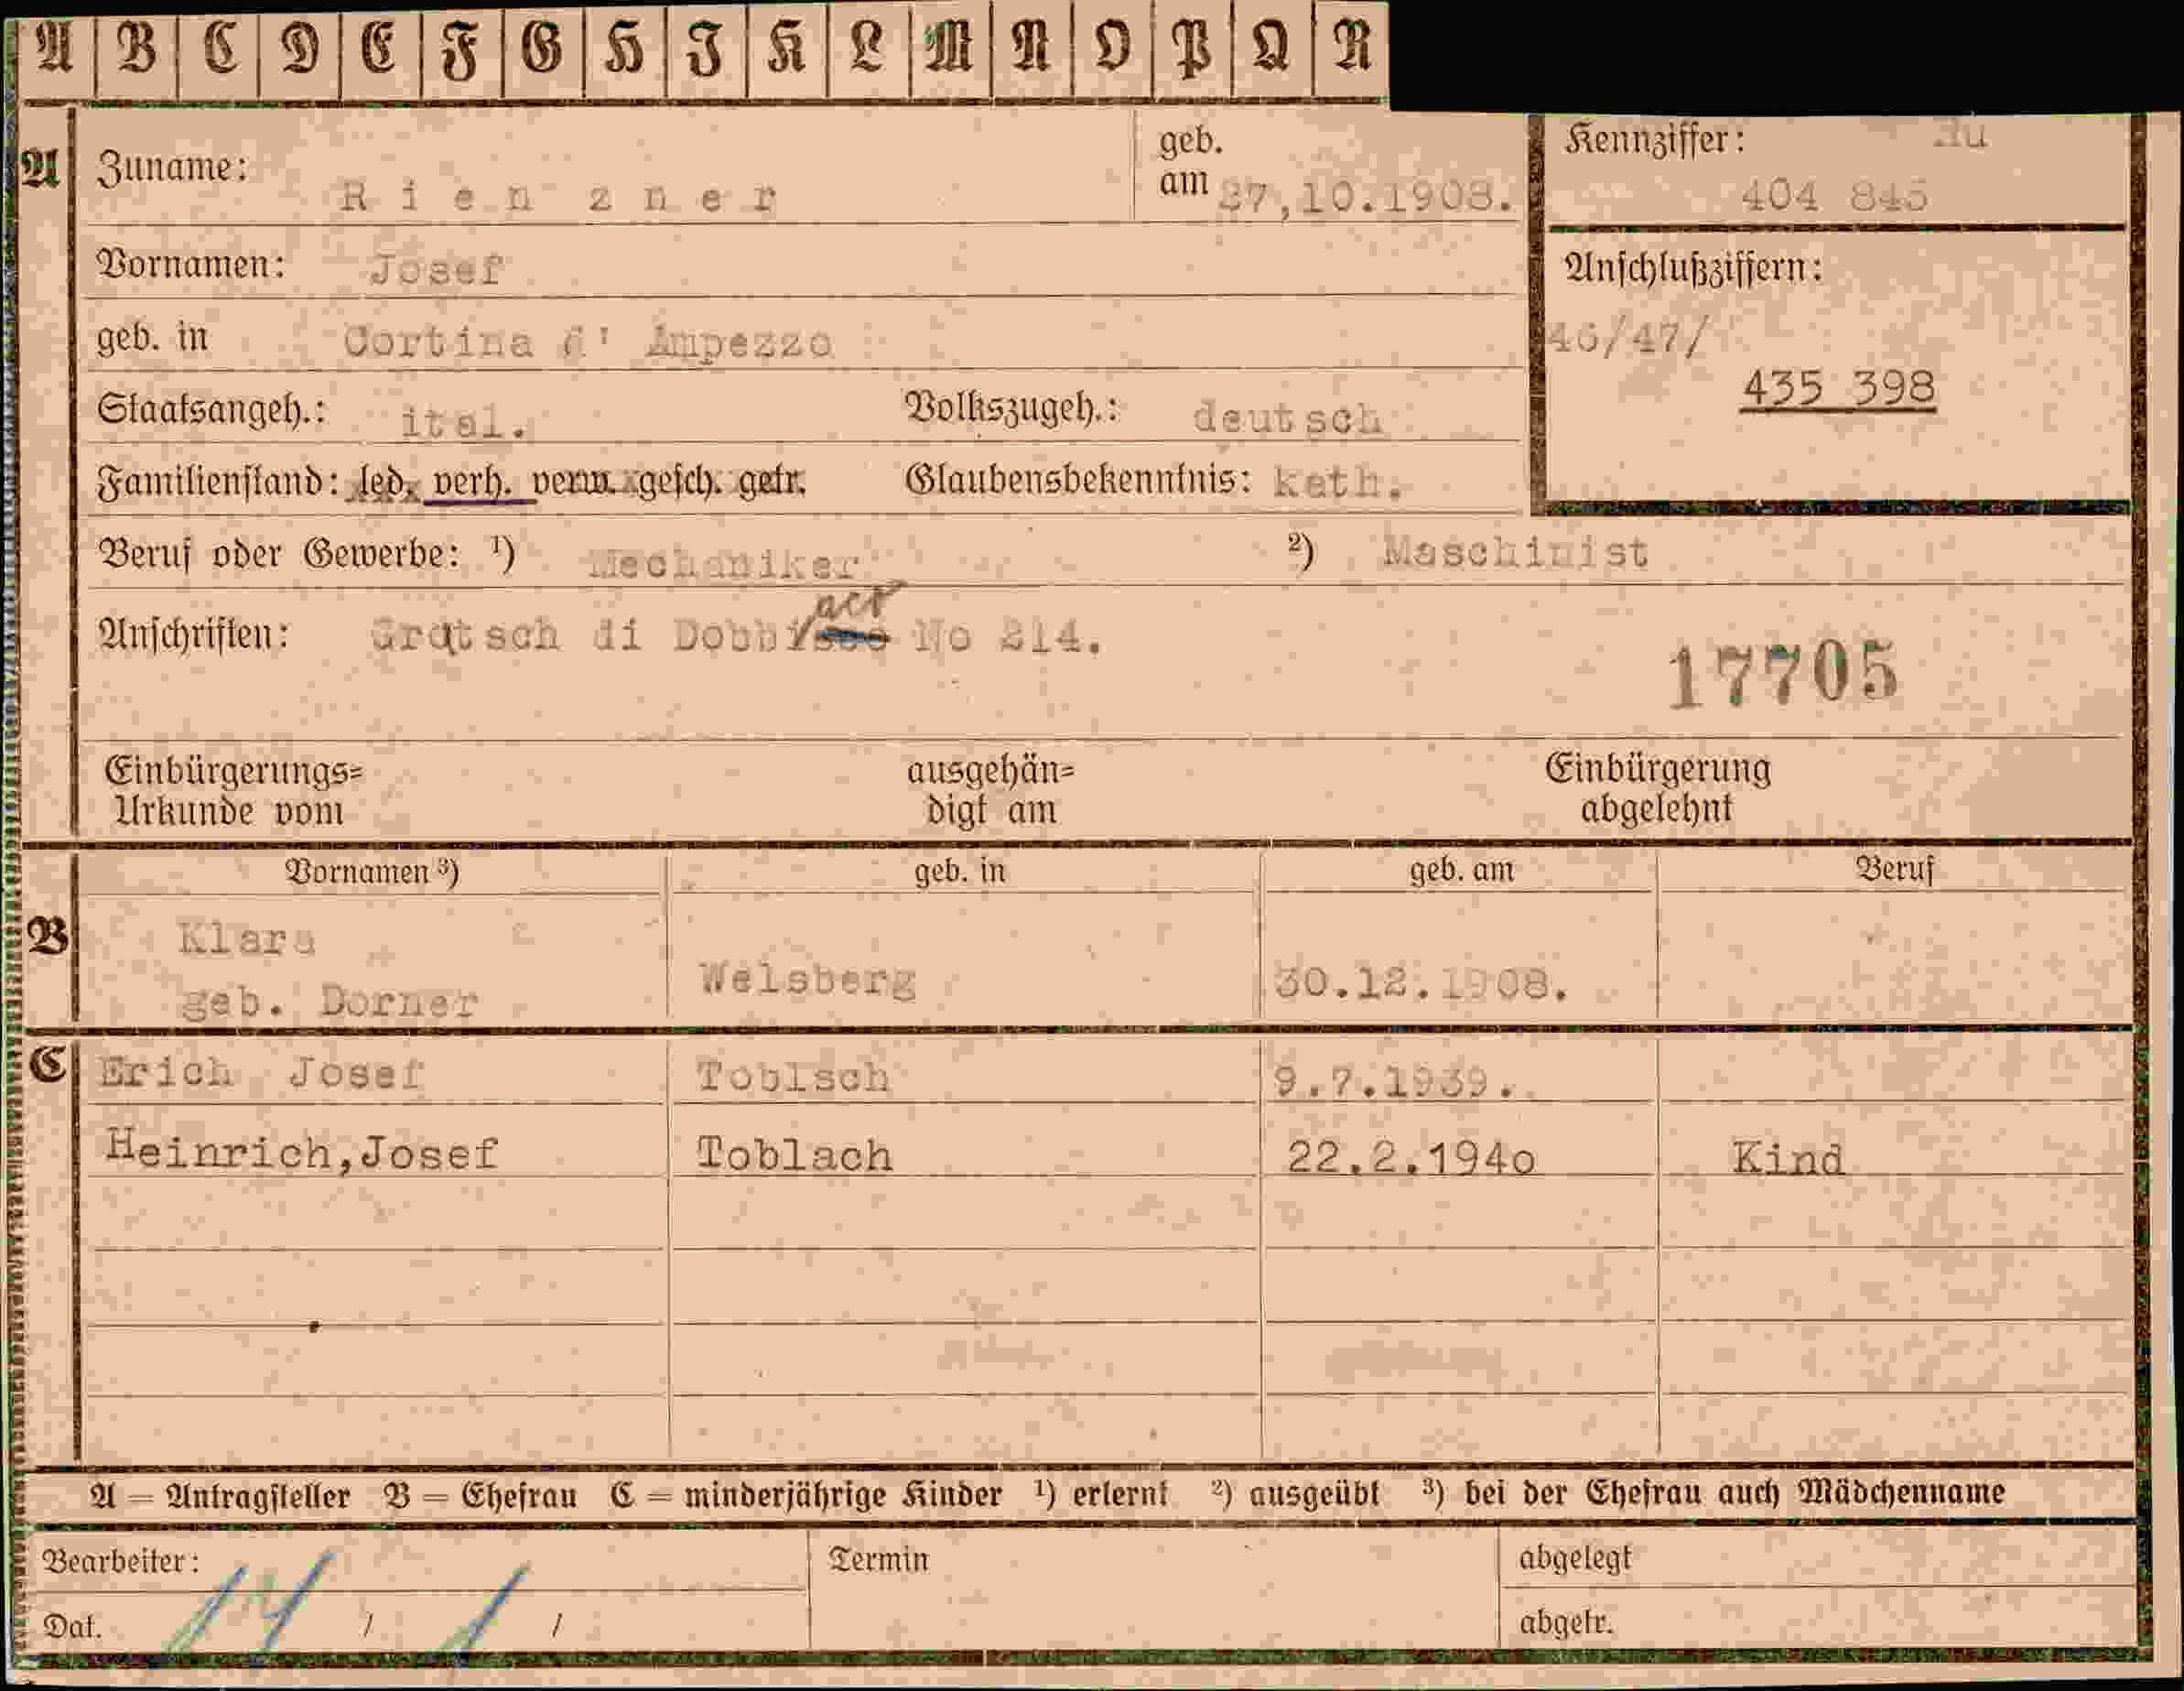 A B C D E F G H I K L M N O P Q R
A Zuname: Rienzner geb. am 27,10.1908.
Kennziffer: 404 845
Vornamen: Josef
Anschlußziffern:
geb. in Cortina d' Ampezzo
46/47/
435 398
Staatsangeh.: ital. Volkszugeh.: deutsch
Familienstand: led. verh. verw. gesch. getr. Glaubensbekenntnis: kath.
Beruf oder Gewerbe: ¹) Mechaniker ²) Maschinist
Anschriften: Gratsch di Dobbi aco No 214.
17705
Einbürgerungs=
Urkunde vom
ausgehän=
digt am
Einbürgerung
abgelehnt
Vornamen ³) geb. in geb. am Beruf
B Klara
geb. Dorner Welsberg 30.12.1908.
C Erich Josef Toblsch 9.7.1939.
Heinrich,Josef Toblach 22.2.194o Kind
A = Antragsteller B = Ehefrau C = minderjährige Kinder ¹) erlernt ²) ausgeübt ³) bei der Ehefrau auch Mädchenname
Bearbeiter: Termin abgelegt
Dat. / / abgetr.